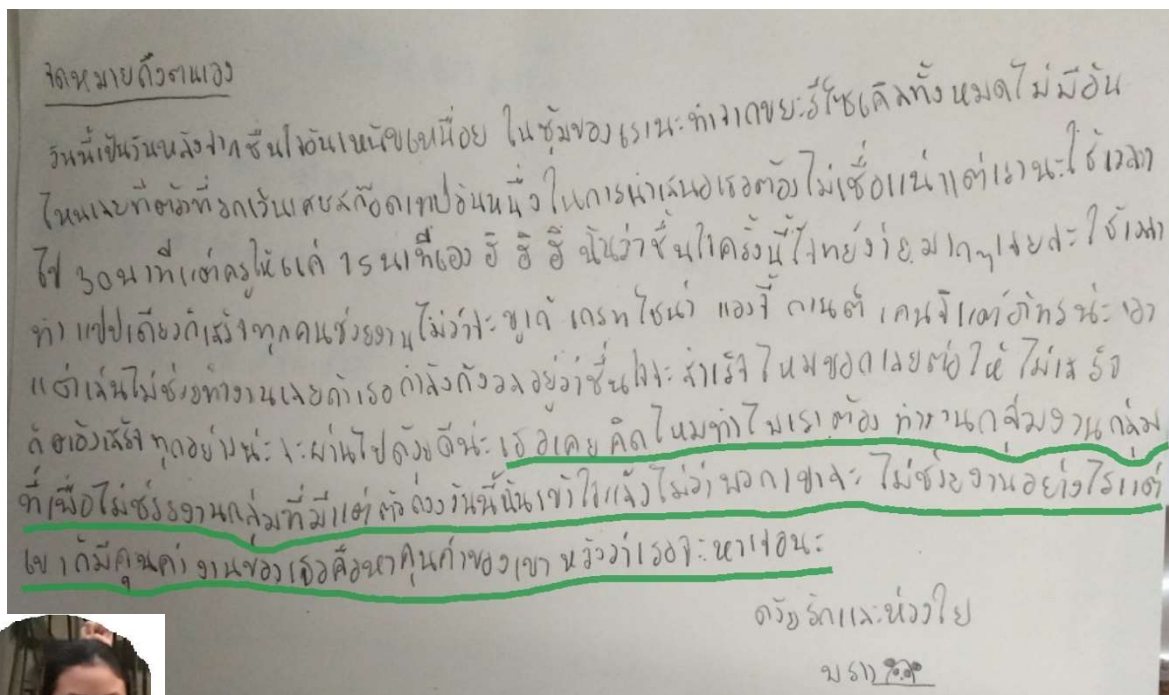 จดหมายถึงตนเอง
วันนี้เป็นวันหลังจากชื่นใจอันเหน็ดเหนื่อย ในซุ้มของเรานะทำจากขยะรีไซเคิลทั้งหมดไม่มีอัน
ไหนเลยที่ตัดที่ยกเว้นเศษสก๊อตเทปอันหนึ่งในการนำเสนอเธอต้องไม่เชื่อแน่แต่เรานะใช้เวลา
ไป 30 นาทีแต่ครูให้แค่ 15 นาทีเอง ฮิ ฮิ ฮิ ฉันว่าชื่นใจครั้งนี้โจทย์ง่ายมากๆเลยล่ะใช้เวลา
ทำแปปเดียวก็เสร็จทุกคนช่วยงานไม่ว่าจะ เกรท ไชน่า แองจี้ กานต์ เคนจิแต่ น่ะเอา
แต่เล่นไม่ช่วยทำงานเลยถ้าเธอกำลังกังวลอยู่ว่าชื่นใจจะสำเร็จไหมขอบอกเลยต่อให้ ไม่เสร็จ
ก็ต้องเสร็จทุกอย่างน่ะจะผ่านไปด้วยดีน่ะเธอเคยคิดไหมทำไมเราต้องทำงานกลุ่มงานกลุ่ม
ที่เพื่อไม่ช่วยงานกลุ่มที่มีแต่ตัวถ่วงวันนี้ฉันเข้าใจแล้วไม่ว่าพวกเขาจะ ไม่ช่วยงานอย่างไรแต่
เขาก็มีคุนค่างานของเธอคือหาคุนค่าของเขาหวังว่าเธอจะหาเจอนะ
ด้วยรักและห่วงใย
พราว